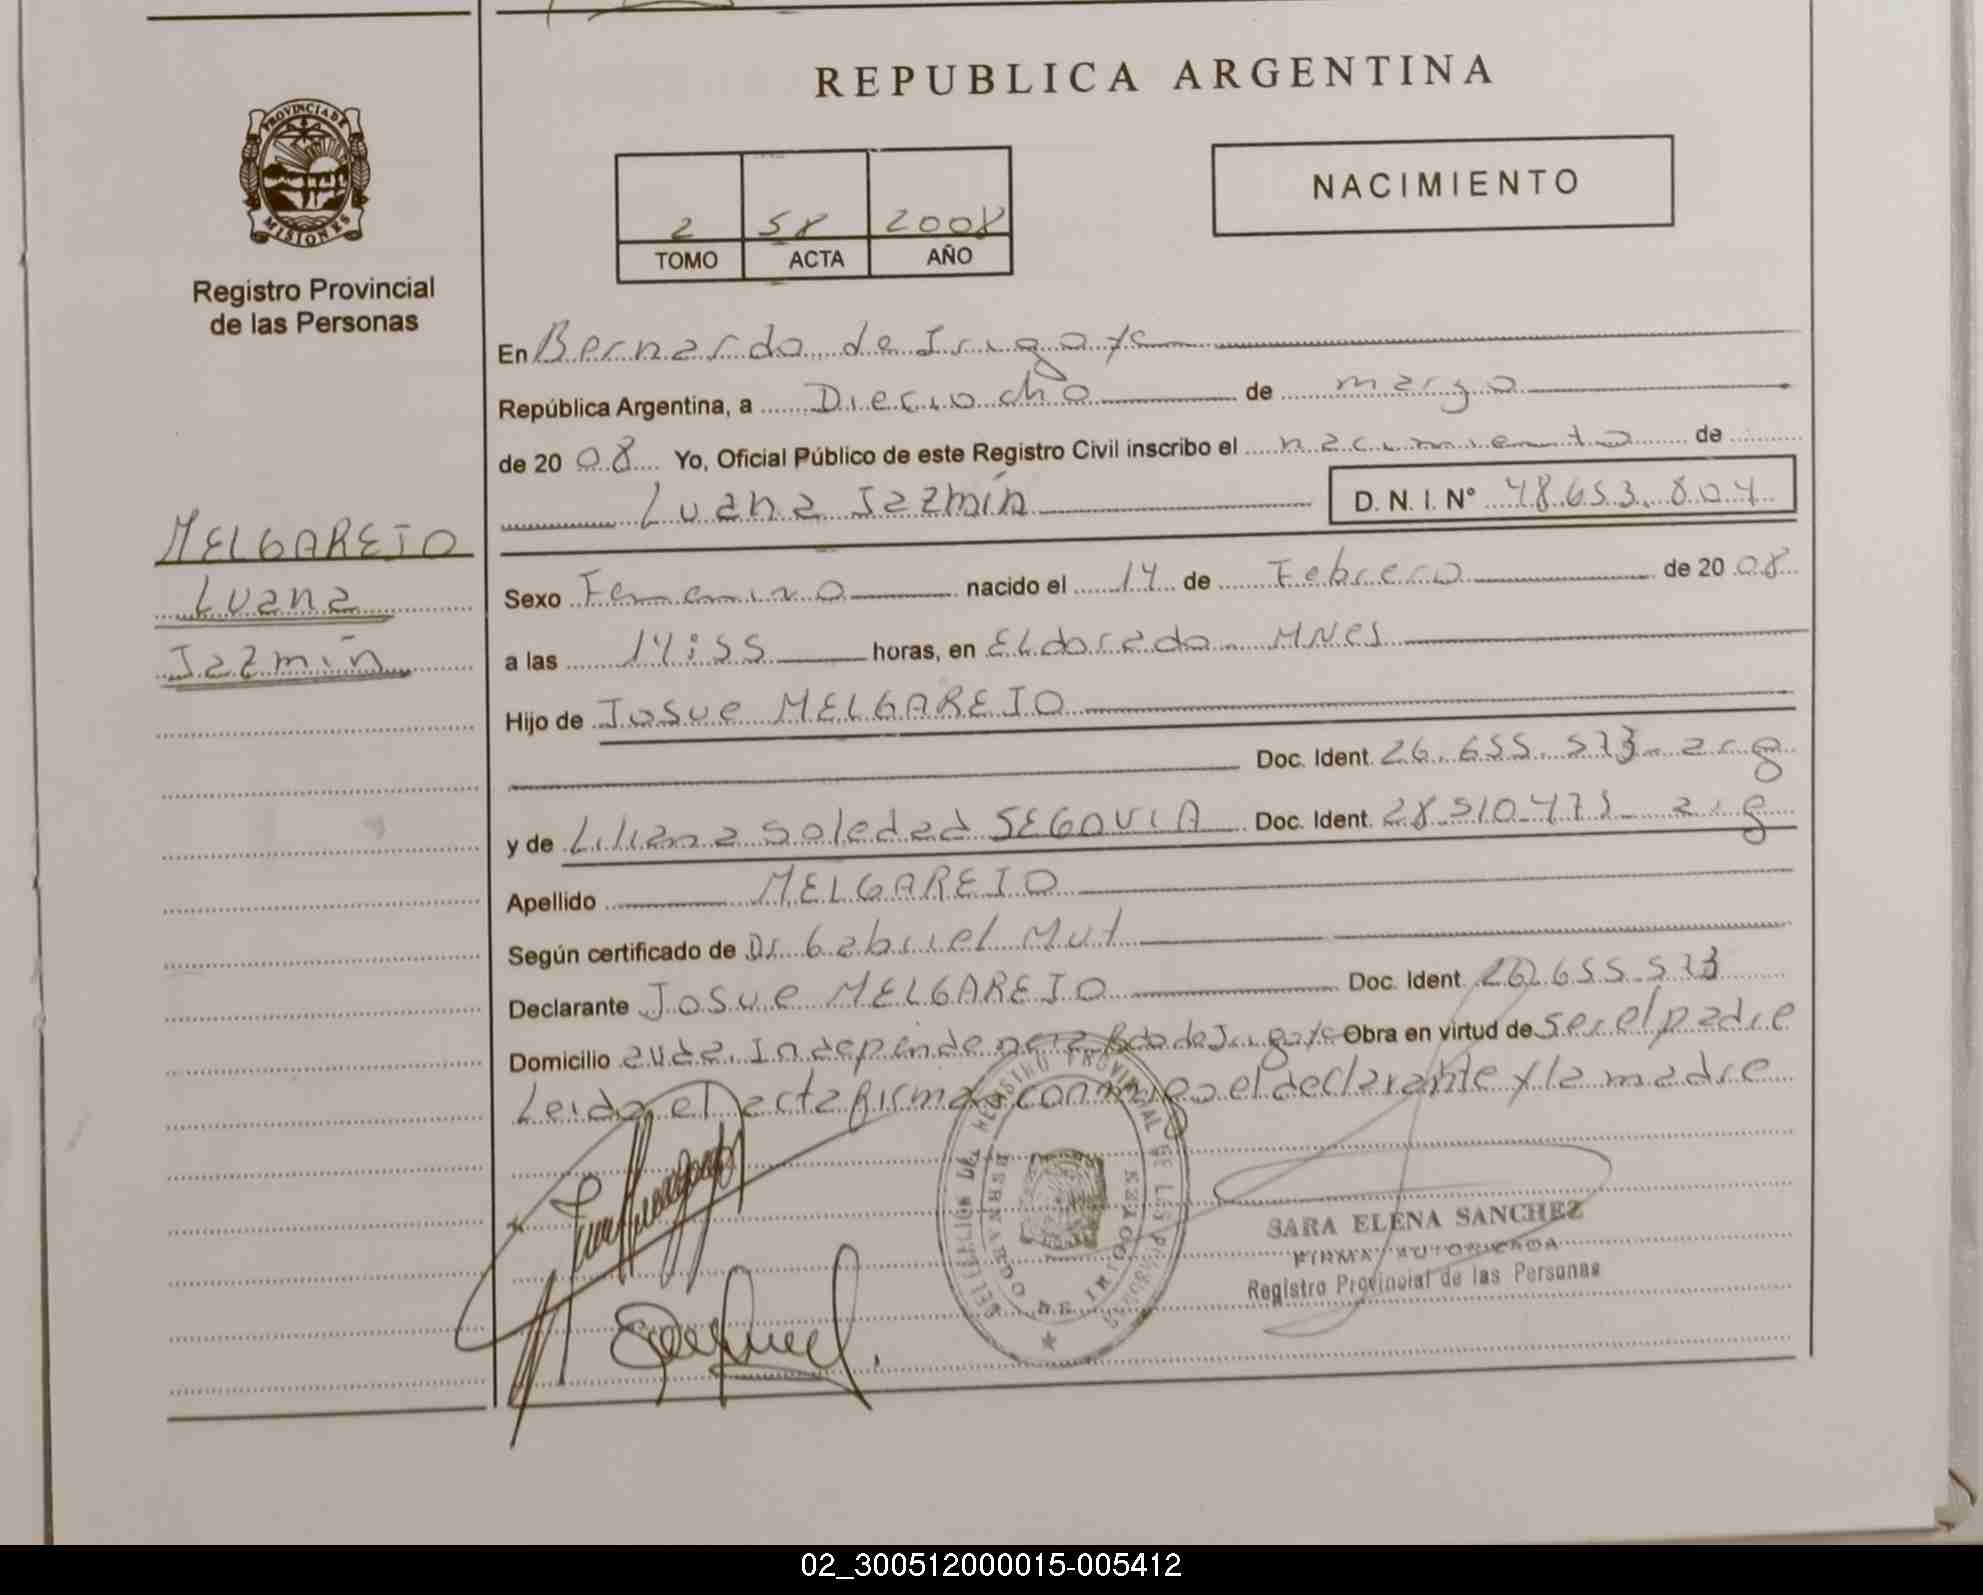 REPUBLICA ARGENTINA
PROVINCIA DE
MISIONES
Registro Provincial
de las Personas
NACIMIENTO
2 58 2008
TOMO ACTA AÑO
En Bernardo de Irigoye
República Argentina, a Dieciocho de marzo
de 2008 Yo, Oficial Público de este Registro Civil inscribo el nacimiento de
Luana Jazmín D. N. I. N° 48.653.804
MELGAREJO
Luana
Jazmín
Sexo Femenino nacido el 14 de Febrero de 2008
a las 14:55 horas, en Eldorado Mnes
Hijo de Josue MELGAREJO
Doc. Ident. 26.655.573 arg
y de Liliana Soledad SEGOVIA Doc. Ident. 28.510.471 arg
Apellido MELGAREJO
Según certificado de Dr. Gabriel Mut
Declarante Josue MELGAREJO Doc. Ident. 26.655.573
Domicilio avda. Independencia Bdo de Irigoye Obra en virtud de ser el padre
Leida el acta firma conmigo el declarante y la madre
DELEGACION DEL REGISTRO PROVINCIAL DE LAS PERSONAS
BERNARDO DE IRIGOYEN
SARA ELENA SANCHEZ
FIRMA AUTORIZADA
Registro Provincial de las Personas
02_300512000015-005412